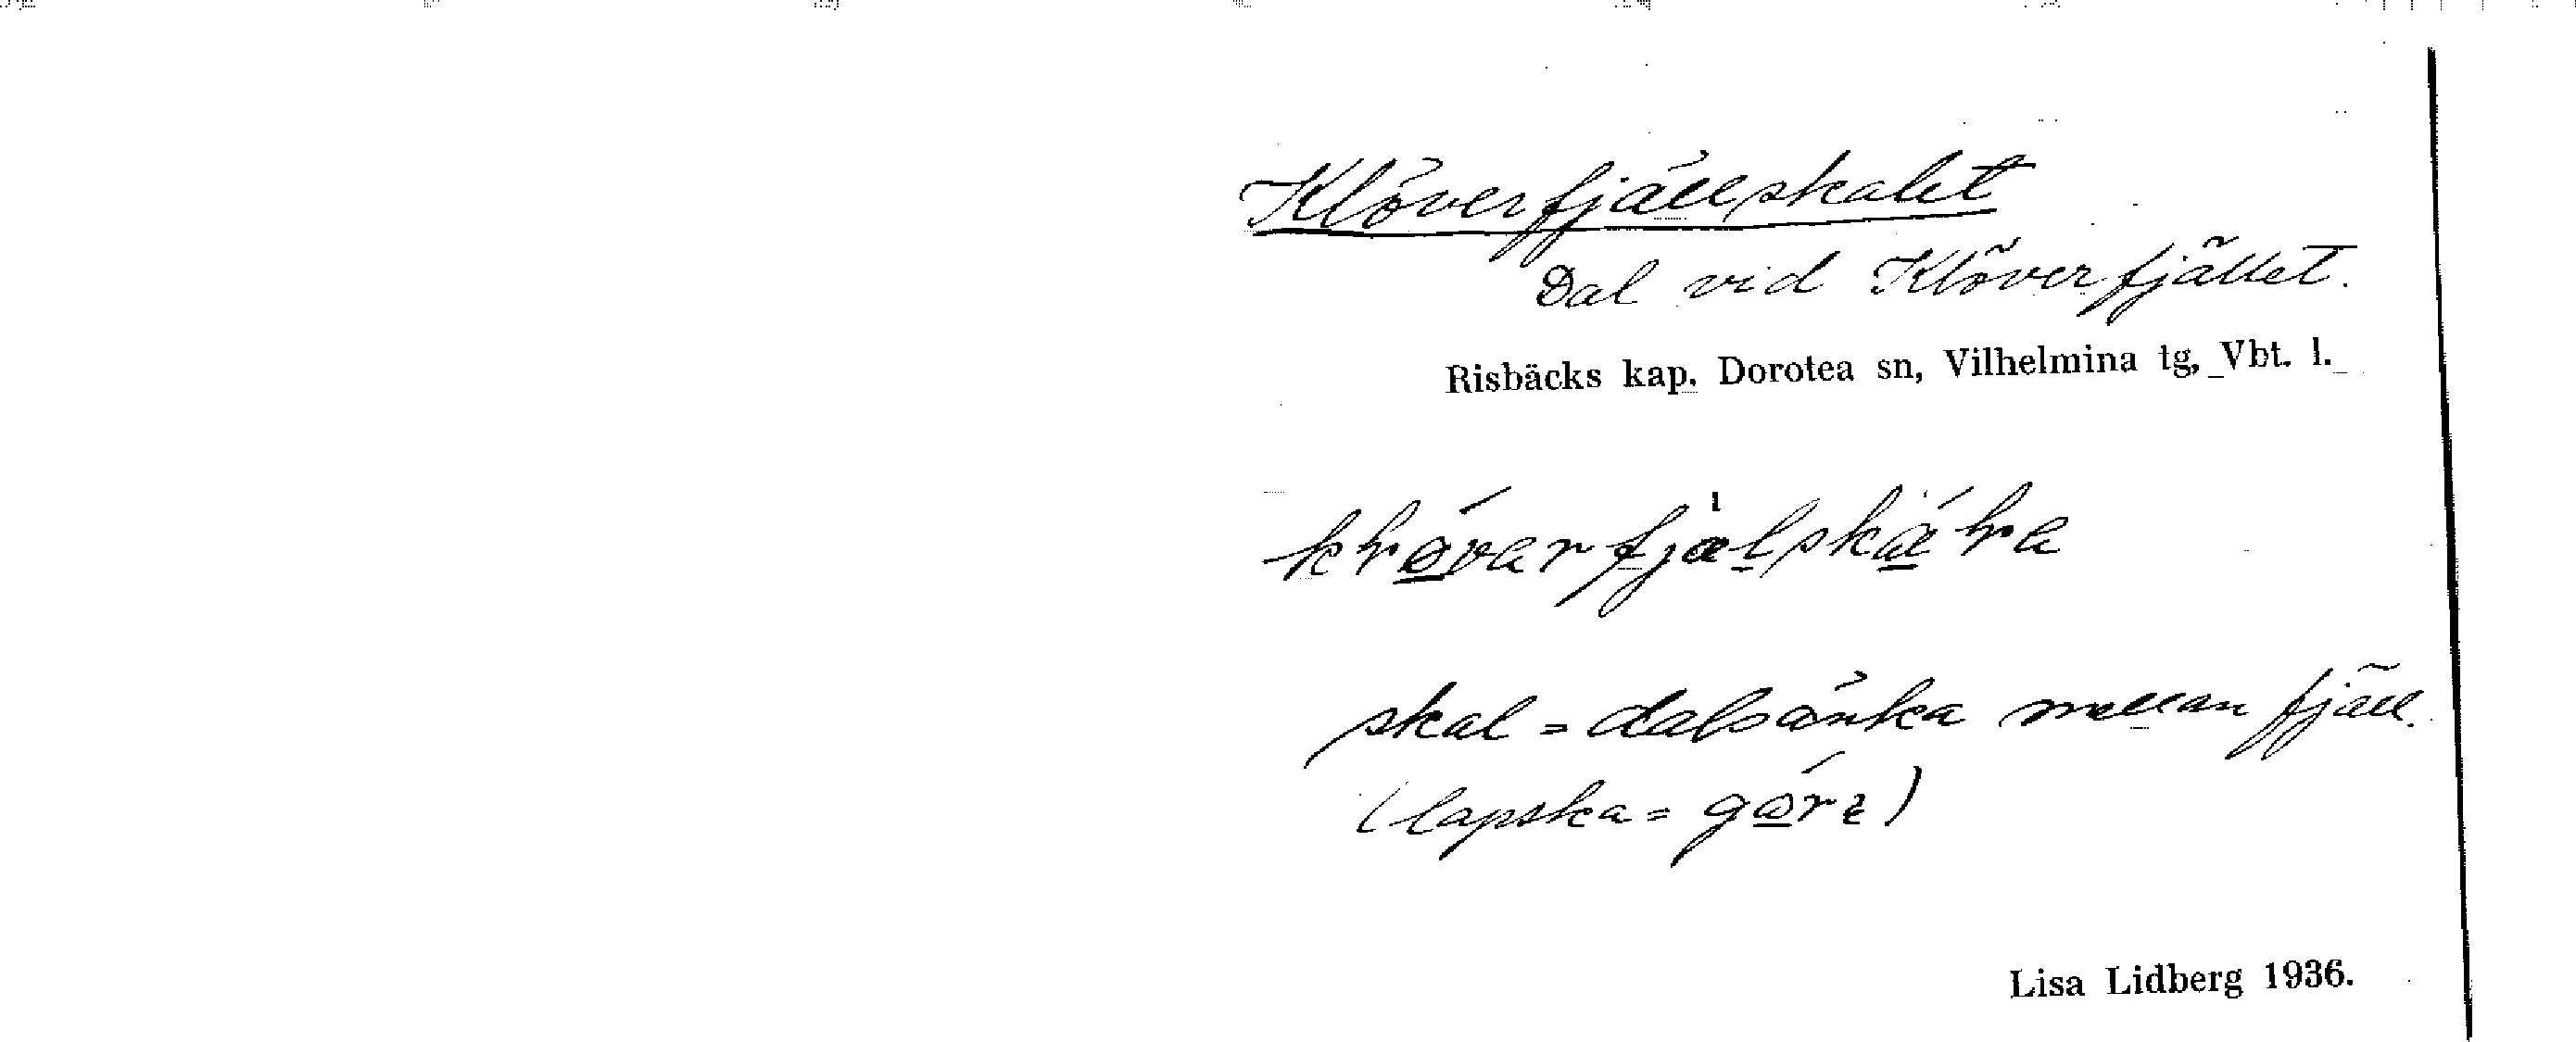 Klöverfjällskalet
Dal vid Klöverfjället.
Risbäcks kap. Dorotea sn, Vilhelmina tg, Vbt. l.
skal = dalsänka mellan fjäll.
(lapska =
Lisa Lidberg 1936.